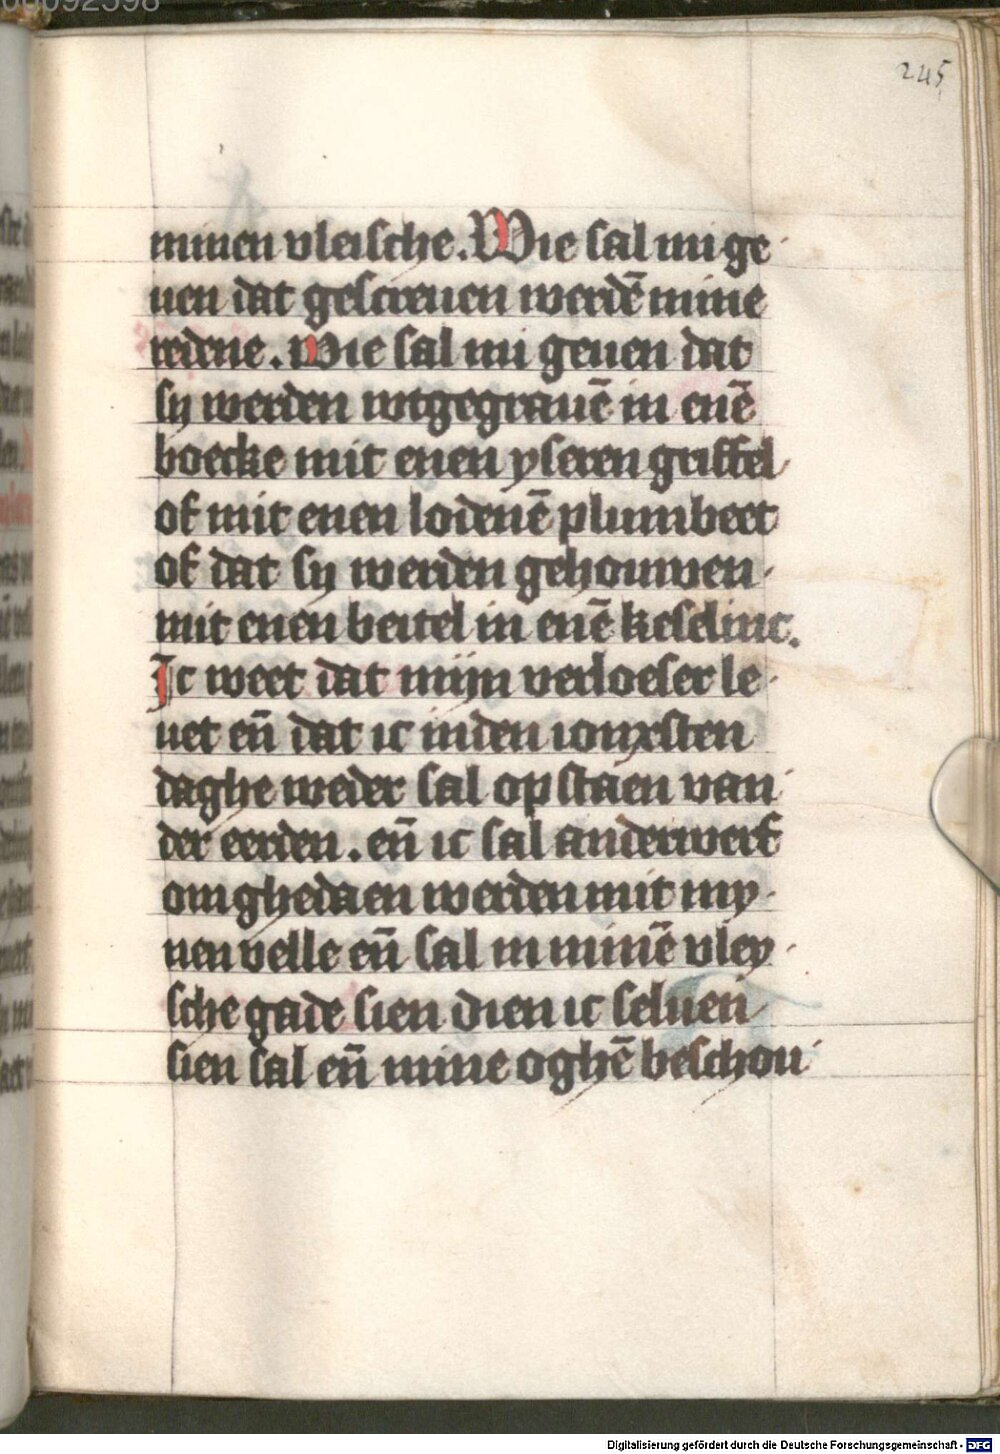 245
minen vleische. Wie sal mi ge
uen dat gescreuen werdē mine
redene. Wie sal mi geuen dat
sy werden wtgegrauē in enē
boecke mit enen yseren griffel
of mit enen lodenē plumbeet
of dat sy werden gehouwen
mit enen beitel in enē keselinc.
Ic weet dat mijn verloeser le
uet eñ dat ic inden ionxsten
daghe weder sal opstaen van
der eerden. eñ ic sal anderwerf
omghedaen werden mit my
nen velle eñ sal in minē vley
sche gade sien dien ic seluen
sien sal eñ mine oghē beschou
Digitalisierung gefördert durch die Deutsche Forschungsgemeinschaft - DFG